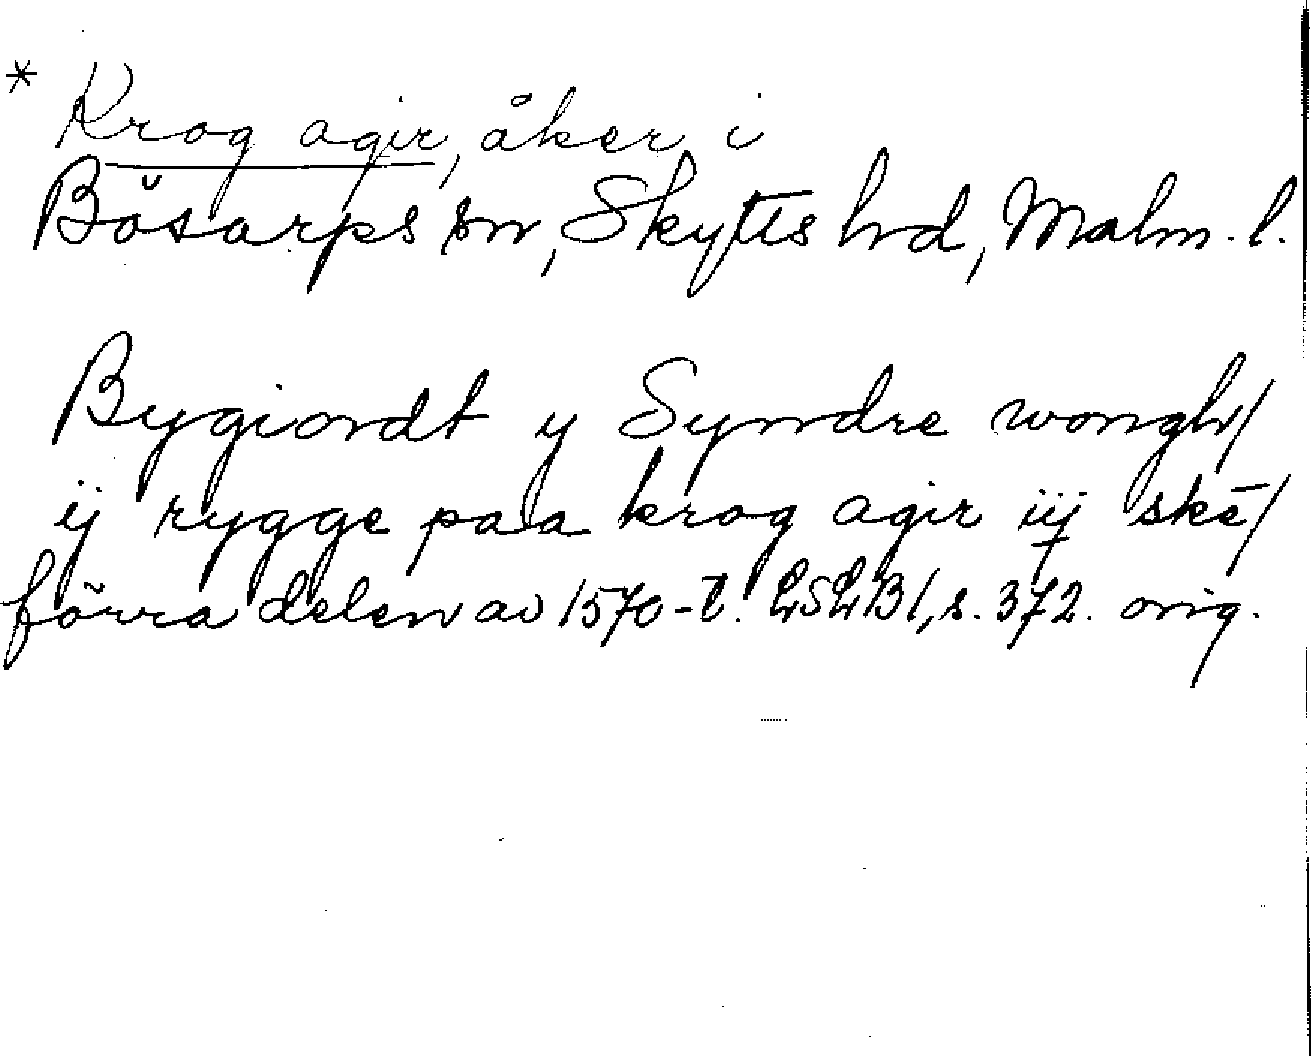 * Krog agir, åker i
Bösarps sn, Skytts hrd, Malm. l.
Bygiordt y Syndre wongh/
ij rygge paa krog agir iij skē/
förra delen av 1570-t. LSLB1, s. 372. orig.